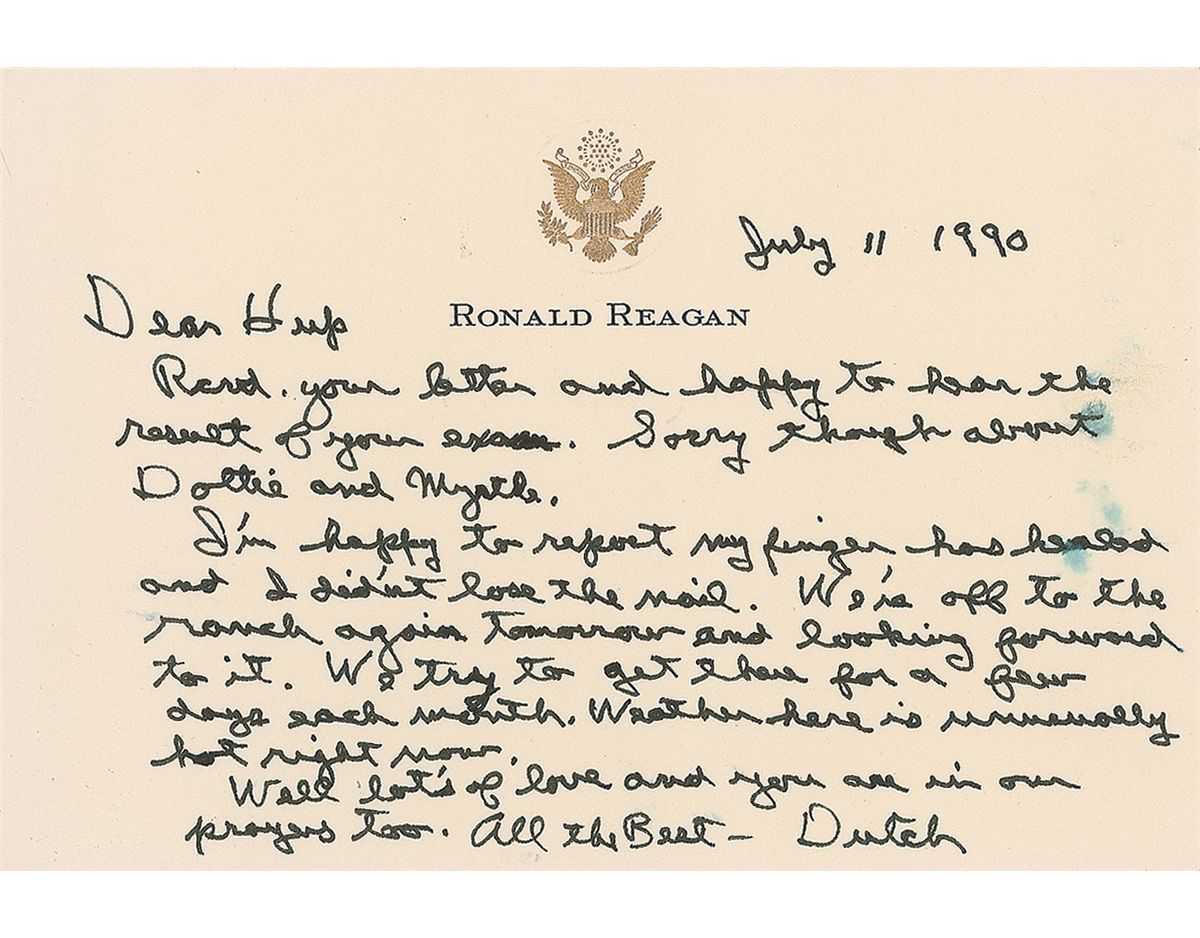 July 11 1990
RONALD REAGAN
Dear Hup
Rcvd. your letter and happy to hear the
result of your exam. Sorry though about
Dottie and Myrtle.
I'm happy to report my finger has healed
and I did'nt lose the nail. We're off to the
ranch again tomorrow and looking forward
to it. We try to get there for a few
days each month. Weather here is unusually
hot right now.
Well lot's of love and you are in our
prayers too. All the Best – Dutch